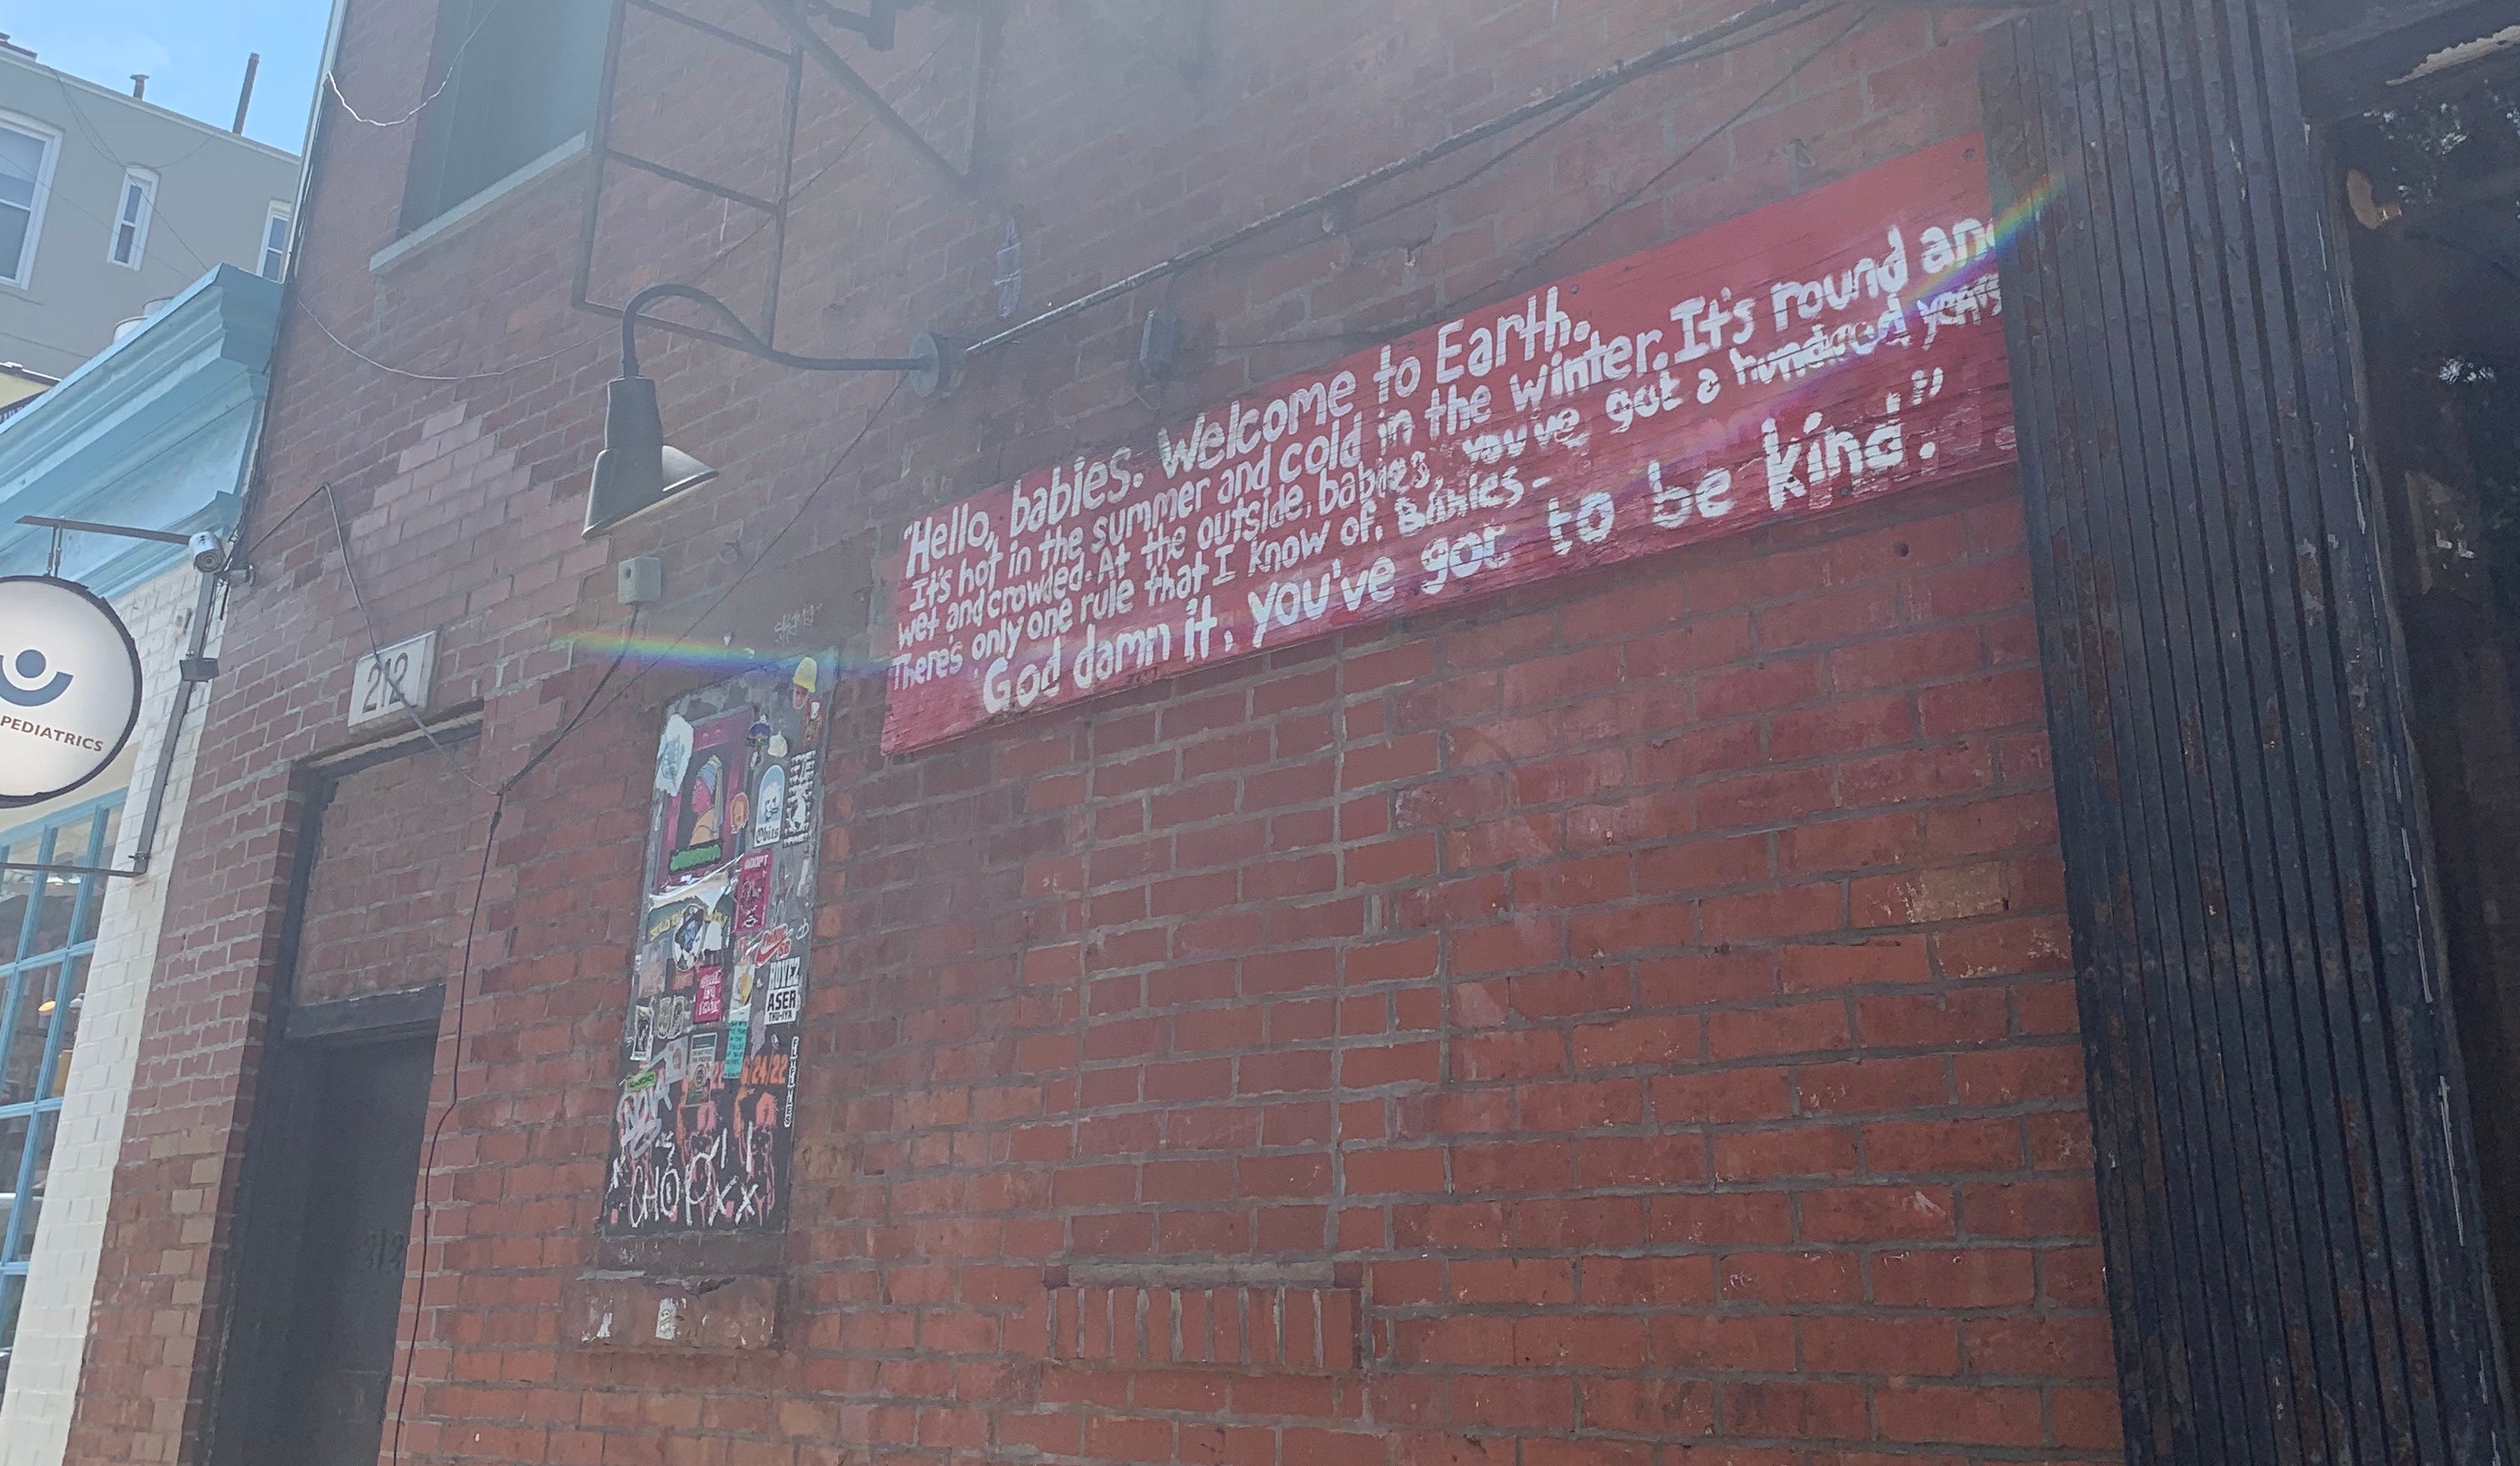 "Hello, babies. Welcome to Earth.
It's hot in the summer and cold in the winter. It's round and
wet and crowded. At the outside, babies, you've got a hundred years
There's only one rule that I know of, Babies-
God damn it, you've got to be kind."
212
PEDIATRICS
Obits
ADOPT
SB
HOVEZ
ASER
THU-IYA
22
24/22
CHOPXX
212